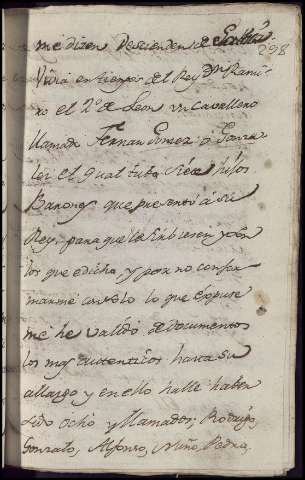 me dizen Descienden de
298
Vivia en tiempo del Rey Dn Rami-
ro el 2º de Leon un Cavallero
llamado Fernan Gomez o Gonza
lez el qual tubo hijos
Barones que presentó á su
Rey para que le sirbiesen
los que dicha, y por no confor
marme con solo lo que expuse
me he valido de Documentos
los mas autenticos hasta su
allazgo y en ello halle haber
sido ocho y llamados; Rodrigo,
Gonzalo, Alfonso, Nuño, Pedro,